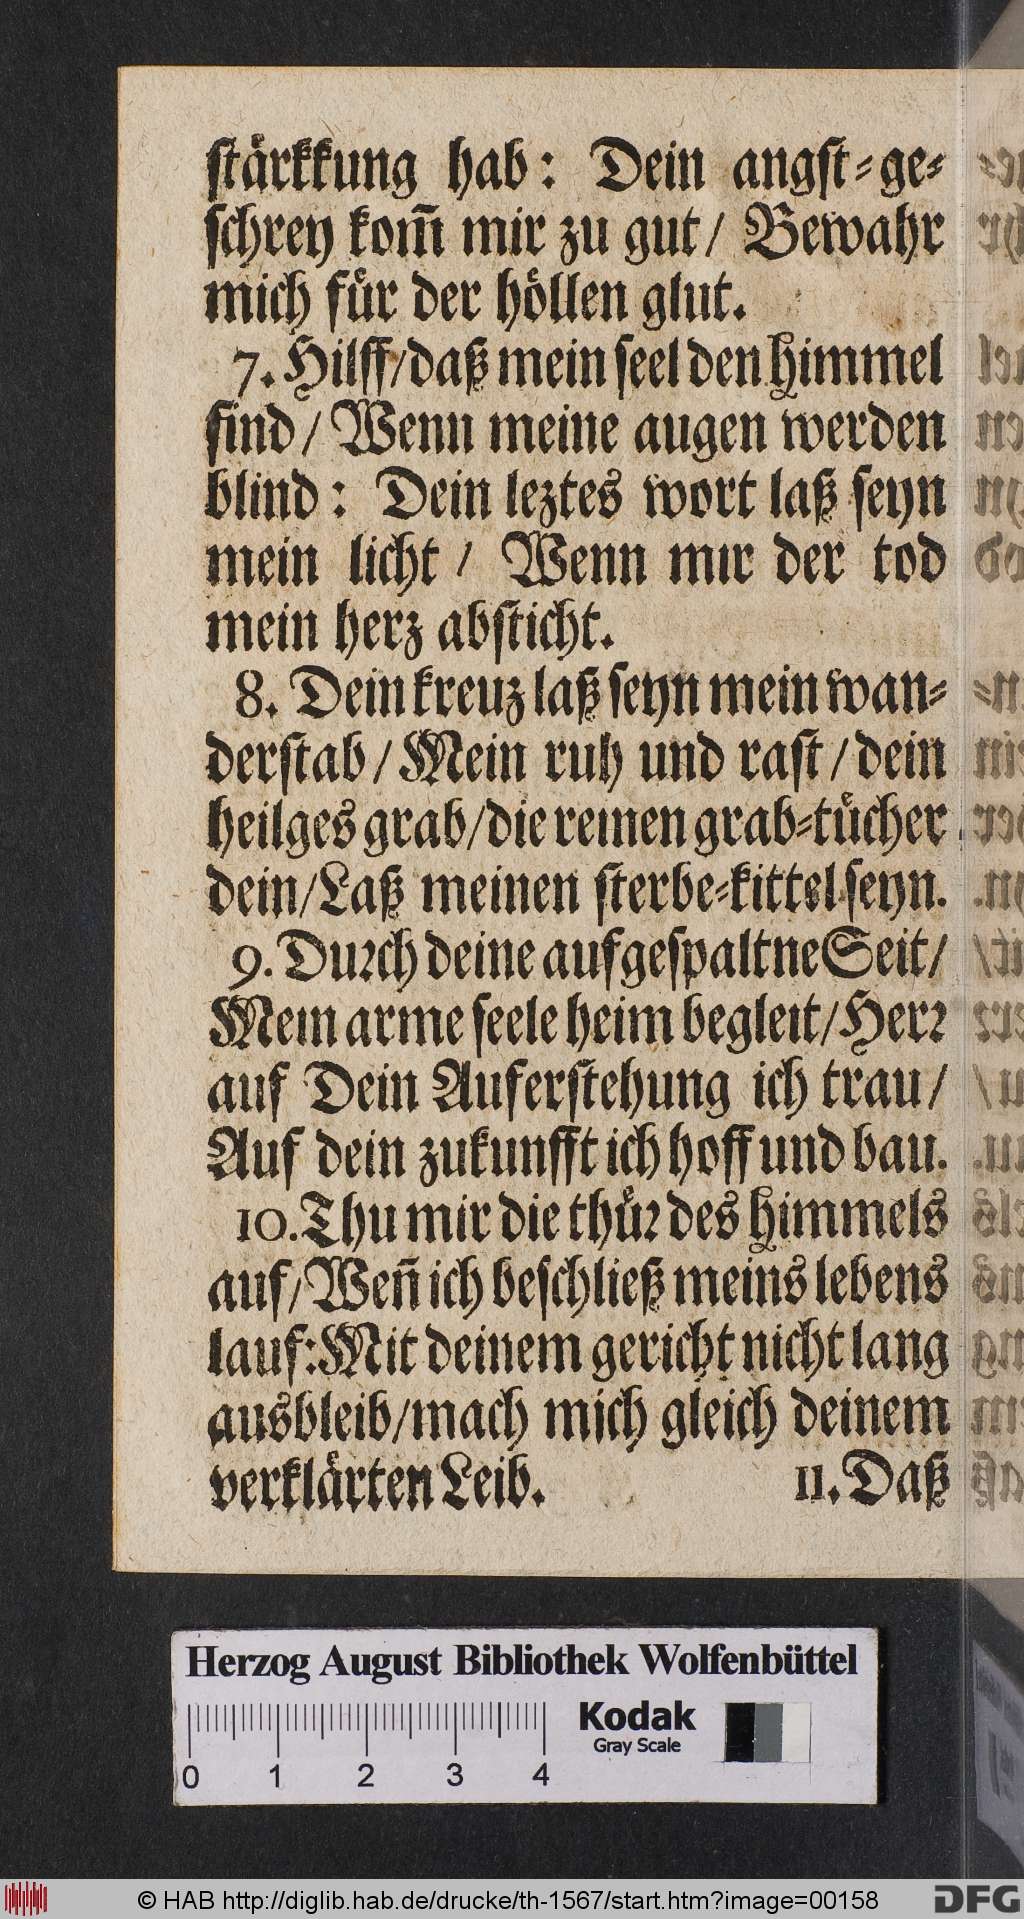 stärkkung hab: Dein angst-ge-
schrey kom̃ mir zu gut/ Bewahr
mich für der höllen glut.
7. Hilff/daß mein seel den Himmel
find/ Wenn meine augen werden
blind: Dein leztes wort laß seyn
mein licht/ Wenn mir der tod
mein herz absticht.
8. Dein kreuz laß seyn mein wan-
derstab/Mein ruh und rast/dein
heilges grab/die reinen grab-tücher
dein/Laß meinen sterbe-kittel seyn.
9. Durch deine aufgespaltne Seit/
Mein arme seele heim begleit/Herr
auf Dein Auferstehung ich trau/
Auf dein zukunfft ich hoff und bau.
10. Thu mir die thür des Himmels
auf/Weñ ich beschließ meins lebens
lauf:Mit deinem gericht nicht lang
ausbleib/mach mich gleich deinem
verklärten Leib. 11. Daß
Herzog August Bibliothek Wolfenbüttel
Kodak
Gray Scale
0 1 2 3 4
© HAB http://diglib.hab.de/drucke/th-1567/start.htm?image=00158
DFG